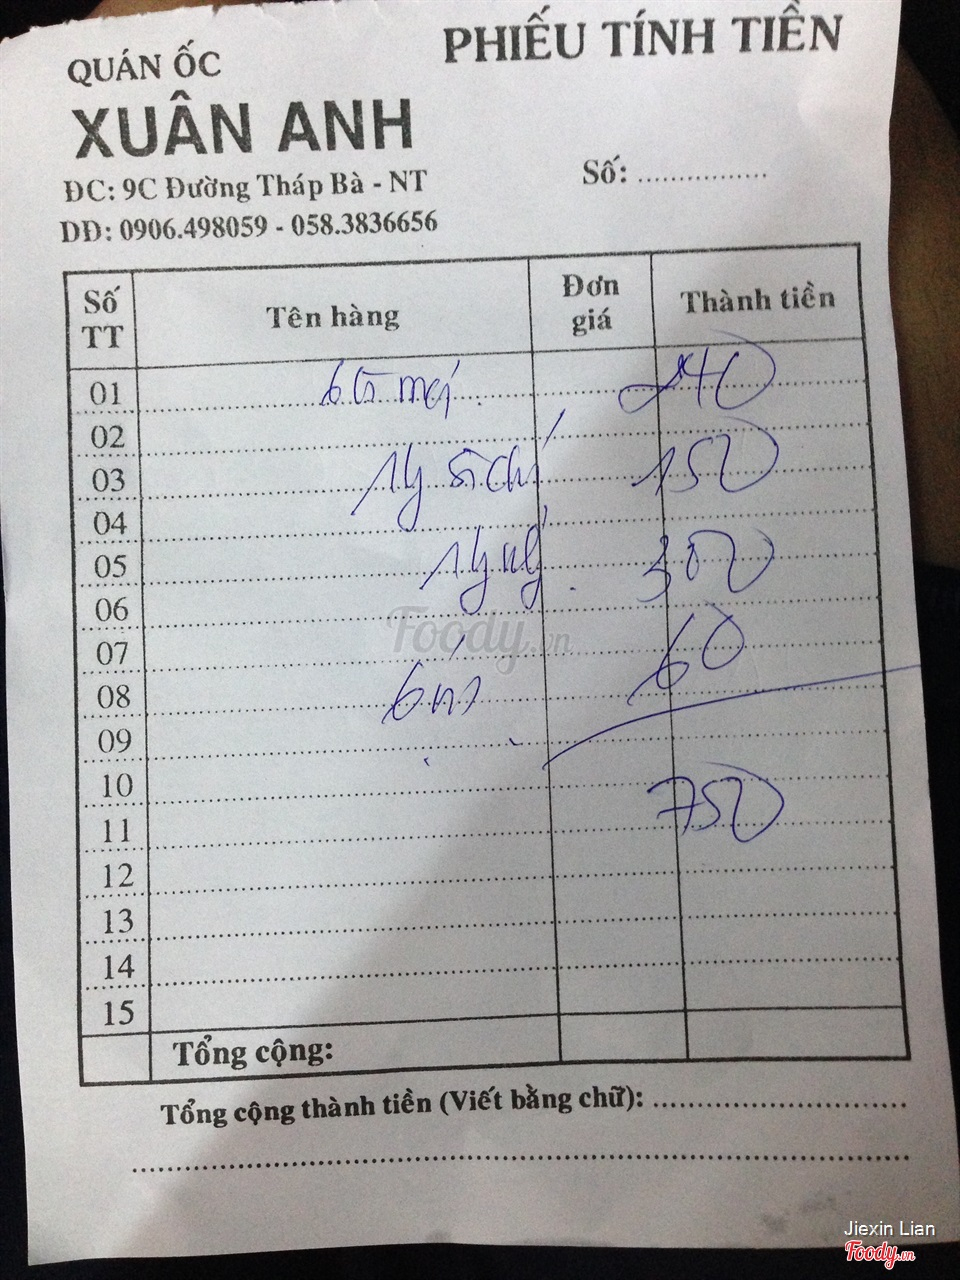 QUÁN ỐC
PHIẾU TÍNH TIỀN
XUÂN ANH
ĐC: 9C Đường Tháp Bà - NT
Số: ...............
DĐ: 0906.498059 - 058.3836656
Số TT Tên hàng Đơn giá Thành tiền
01 240
02
03 150
04
05 300
06
07 60
08
09
10
11 750
12
13
14
15
Tổng cộng:
Tổng cộng thành tiền (Viết bằng chữ): ..............................
Foody.vn
Jiexin Lian
Foody.vn